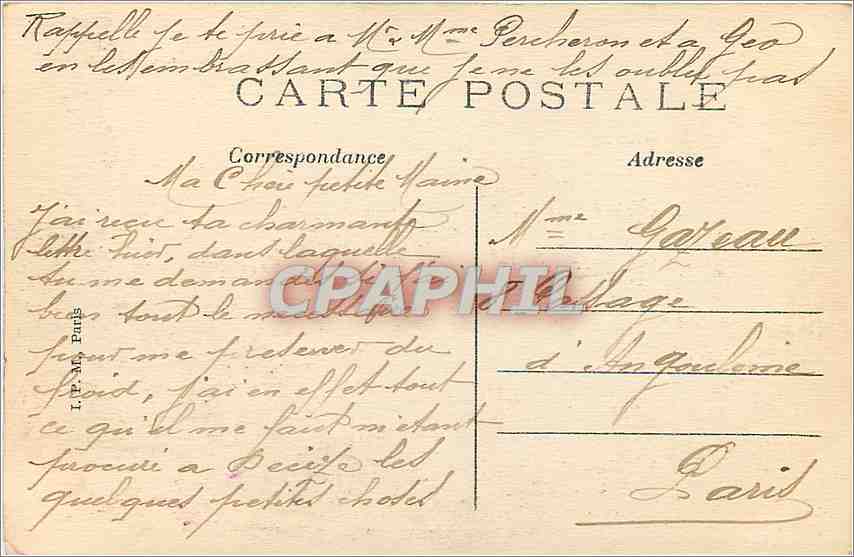 Rappelle je te prie a Mr & Mme Percheron et a Geo
en les embrassant que je ne les oublie pas
CARTE POSTALE
Correspondance
Adresse
Ma Chère petite Naine
J'ai reçu ta charmante
lettre hier, dans laquelle
tu me demandes si j'ai
bien tout le
pour me preserver du
froid, j'ai en effet tout
ce qu'il me faut m'étant
procuré a Decize les
quelques petites choses
Mme Gazeau
8 Passage
d'Angouleme
Paris
I. P. M., Paris
CPAPHIL